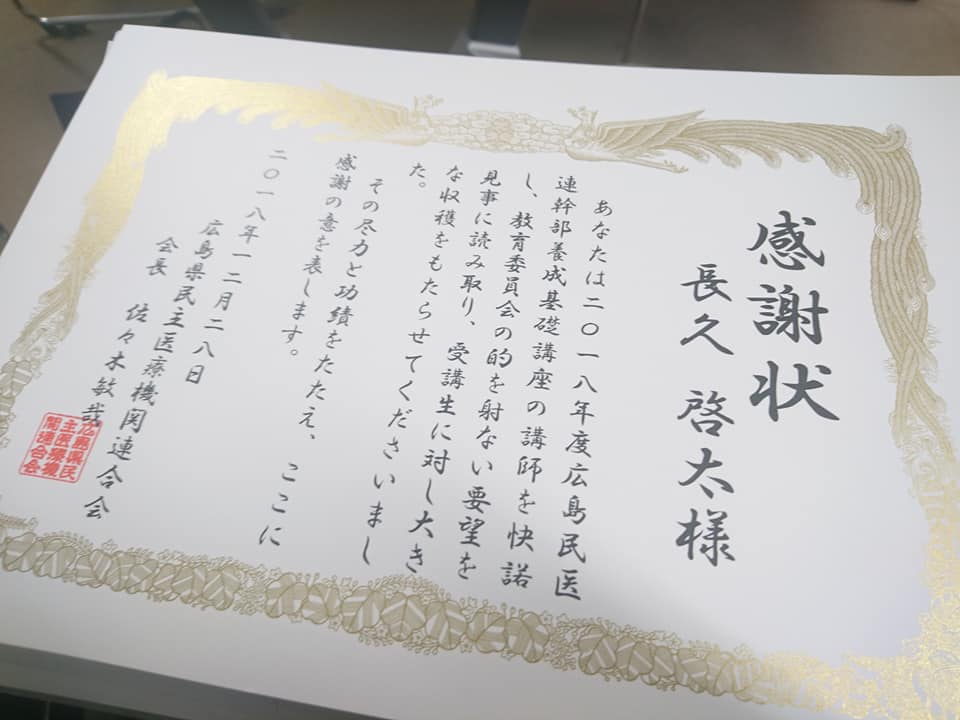 感謝状
長久 啓太様
あなたは二〇一八年度広島民医
連幹部養成基礎講座の講師を快諾
し、教育委員会の的を射ない要望を
見事に読み取り、受講生に対し大き
な収穫をもたらせてくださいまし
た。
その尽力と功績をたたえ、ここに
感謝の意を表します。
二〇一八年一二月二八日
広島県民主医療機関連合会
会長 佐々木敏哉
広島県民
主医療機
関連合会